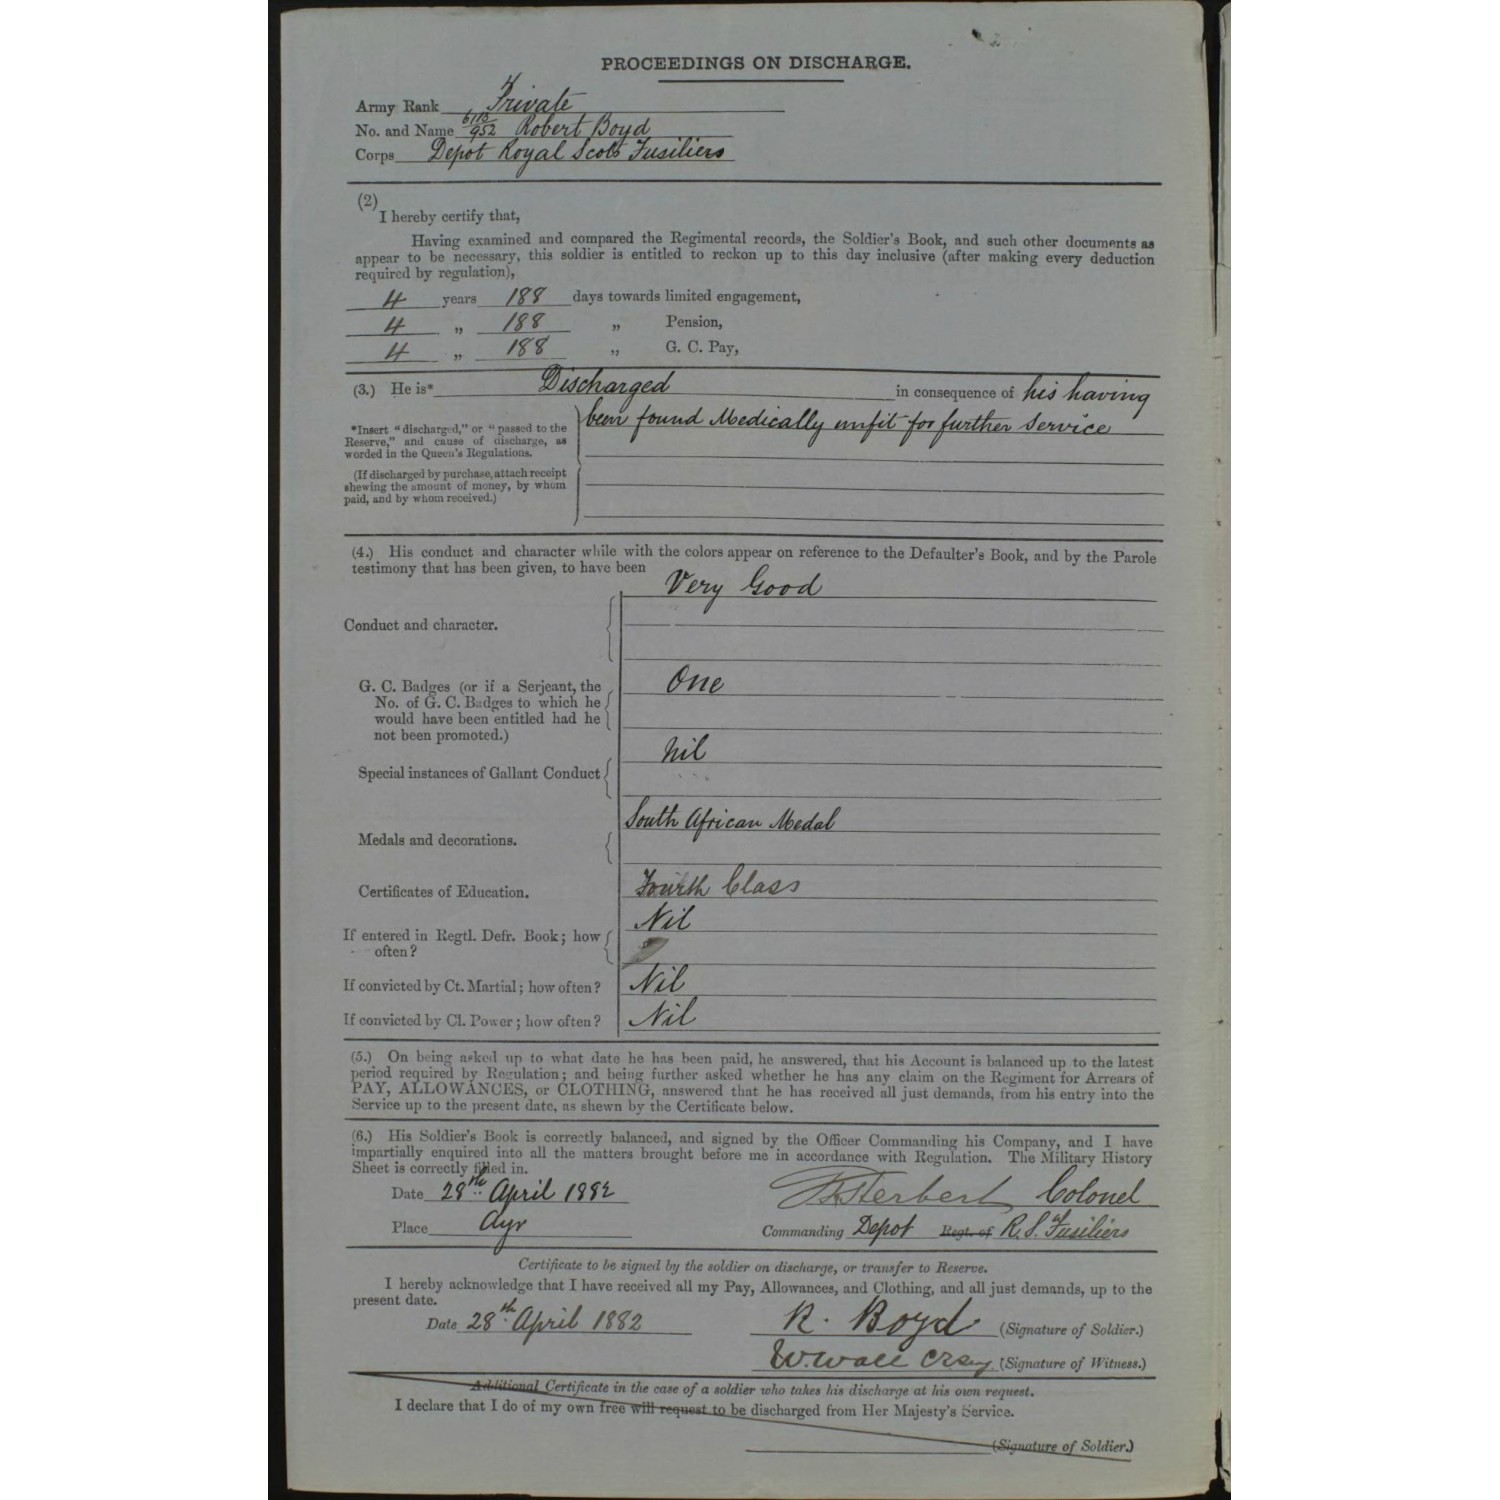 PROCEEDINGS ON DISCHARGE.
Army Rank Private
No. and Name 61B/952 Robert Boyd
Corps Depot Royal Scots Fusiliers
(2)
I hereby certify that,
Having examined and compared the Regimental records, the Soldier's Book, and such other documents as
appear to be necessary, this soldier is entitled to reckon up to this day inclusive (after making every deduction
required by regulation),
4 years 188 days towards limited engagement,
4 „ 188 „ Pension,
4 „ 188 „ G. C. Pay,
(3.) He is* Discharged in consequence of his having
been found Medically unfit for further Service
*Insert "discharged," or "passed to the
Reserve," and cause of discharge, as
worded in the Queen's Regulations.
(If discharged by purchase, attach receipt
shewing the amount of money, by whom
paid, and by whom received.)
(4.) His conduct and character while with the colors appear on reference to the Defaulter's Book, and by the Parole
testimony that has been given, to have been
Very Good
Conduct and character.
G. C. Badges (or if a Serjeant, the
No. of G. C. Badges to which he
would have been entitled had he
not been promoted.)
One
Special instances of Gallant Conduct
Nil
Medals and decorations.
South African Medal
Certificates of Education.
Fourth Class
If entered in Regtl. Defr. Book; how
often?
Nil
If convicted by Ct. Martial; how often? Nil
If convicted by Cl. Power; how often? Nil
(5.) On being asked up to what date he has been paid, he answered, that his Account is balanced up to the latest
period required by Regulation; and being further asked whether he has any claim on the Regiment for Arrears of
PAY, ALLOWANCES, or CLOTHING, answered that he has received all just demands, from his entry into the
Service up to the present date, as shewn by the Certificate below.
(6.) His Soldier's Book is correctly balanced, and signed by the Officer Commanding his Company, and I have
impartially enquired into all the matters brought before me in accordance with Regulation. The Military History
Sheet is correctly filled in.
Date 28th April 1882 Herbert Colonel
Place Ayr Commanding Depot Regt. of R. S. Fusiliers
Certificate to be signed by the soldier on discharge, or transfer to Reserve.
I hereby acknowledge that I have received all my Pay, Allowances, and Clothing, and all just demands, up to the
present date.
Date 28th April 1882 R. Boyd (Signature of Soldier.)
(Signature of Witness.)
Additional Certificate in the case of a soldier who takes his discharge at his own request.
I declare that I do of my own free will request to be discharged from Her Majesty's Service.
(Signature of Soldier.)